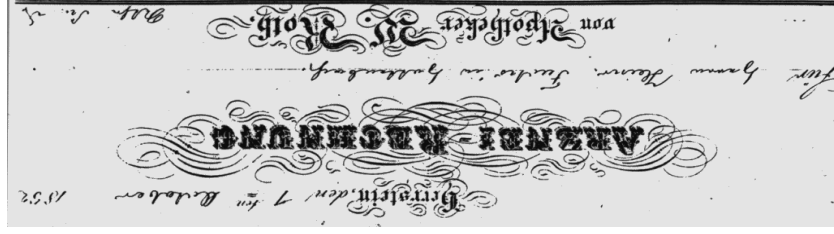 Herrstein, den 7ten October 1852
ARZNEI-RECHNUNG
Für Herrn Heinr. in
von Apotheker W. Roth.